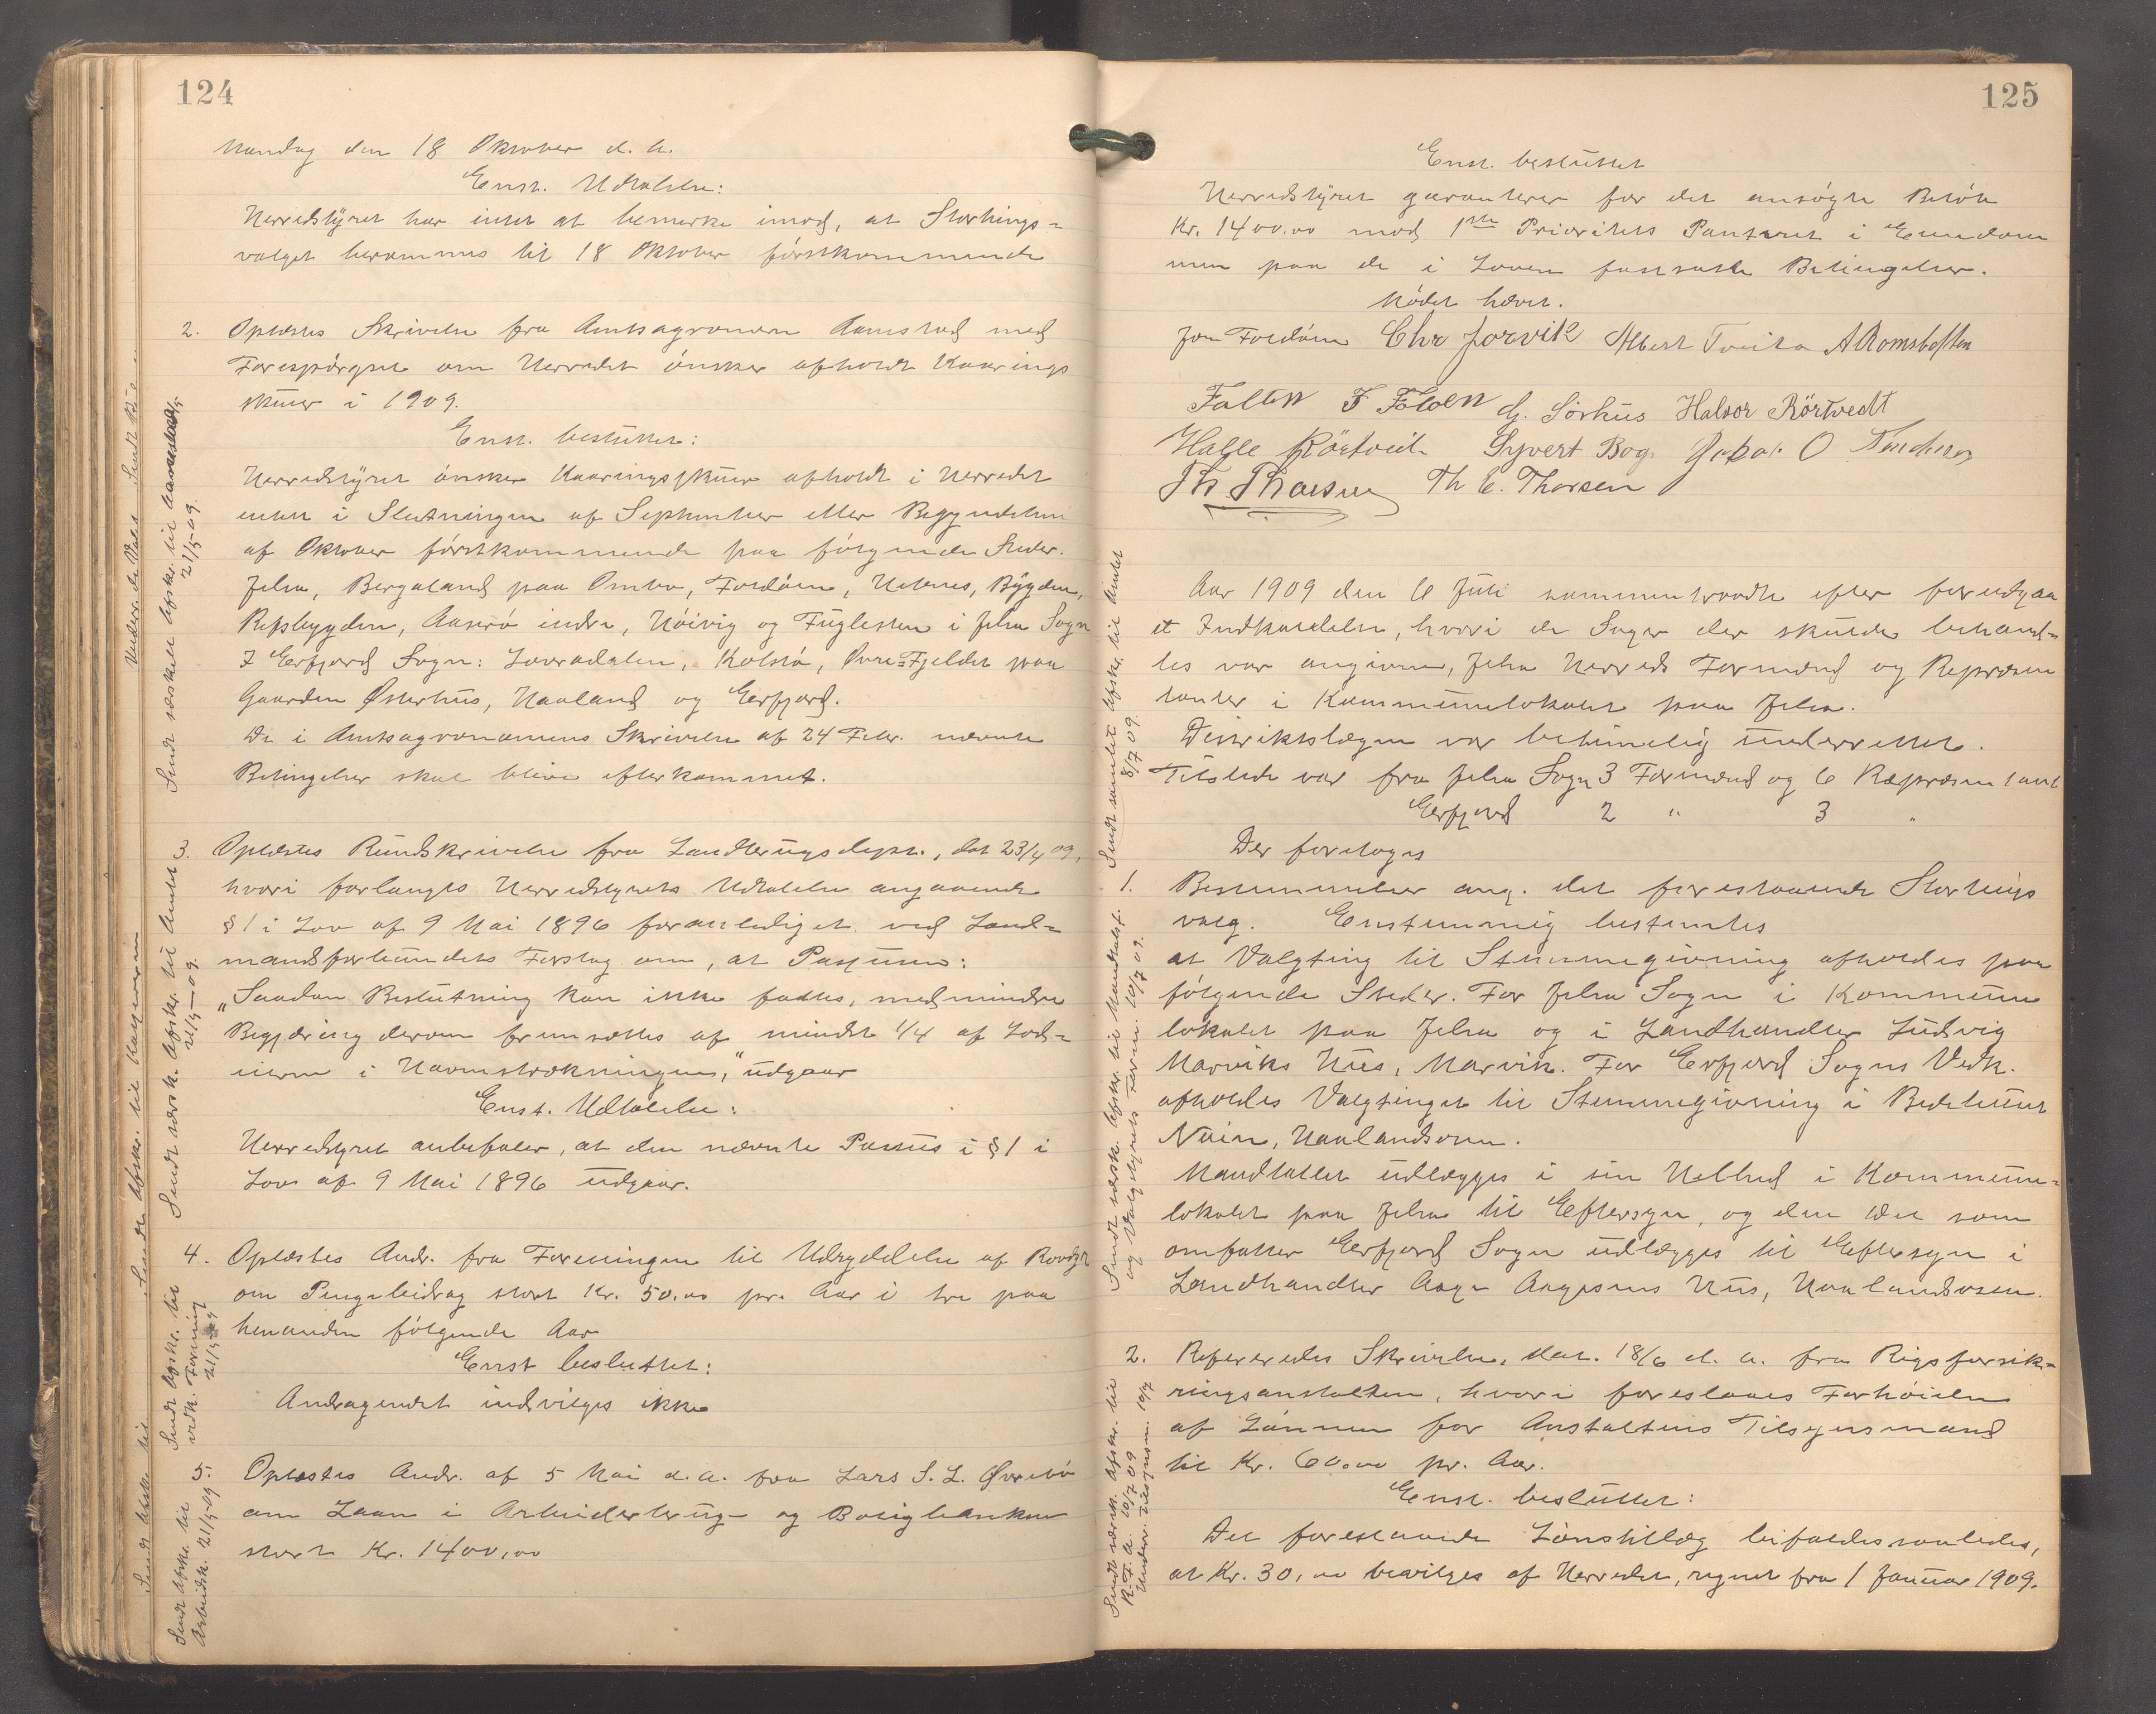 124
Mandag den 18 Oktober d. A.
Enst. Udtalelse:
Herredstyret har intet at bemerke imod, at Storthings=
valget berammes til 18 Oktober førstkommende
2. Oplæstes Skrivelse fra Amtsagronom Aamstad med
Forespørgsel om Herredet ønsker afholdt Kaarings
skuer i 1909.
Enst. besluttet:
Herredstyret ønsker Kaaringsskuer afholdt i Herredet
enten i Slutningen af September eller Begyndelsen
af Oktober førstkommende paa følgende Steder.
Jelsa, Bergaland paa Ombo, Foldøen, Hebnes, Bygden,
Repsbygden, Aaserø indre, Høivig og Fuglesten i Jelsa Sogn
I Erfjord Sogn: Lovradalen, Kolstø, Øvre=Fjeldet paa
Gaarden Østerhus, Haaland og Erfjord.
De i Amtsagronomens Skrivelse af 24 Febr. nævnte
Betingelser skal blive efterkommet.
3. Oplæstes Rundskrivelse fra Landbrugsdept., dat 23/4 09,
hvori forlanges Herredstyrets Udtalelse angaaende
§ 1 i Lov af 9 Mai 1896 foranlediget ved Land=
mandsforbundets Forslag om, at Passusen:
„Saadan Beslutning kan ikke fattes, medmindre
Begjæring derom fremsættes af mindst 1/4 af Lod=
eierne i Havnestrækningen," udgaar
Enst. Udtalelse:
Herredstyret anbefaler, at den nævnte Passus i § 1 i
Lov af 9 Mai 1896 udgaar.
4. Oplæstes Andr. fra Foreningen til Udryddelse af Rovdyr
om Pengebidrag stort Kr. 50.00 pr. Aar i tre paa
hverandre følgende Aar
Enst besluttet:
Andragendet indvilges ikke
5. Oplæstes Andr. af 5 Mai d. A. fra Lars S. L. Øvrebø
om Laan i Arbeiderbrug- og Boligbanken
stort Kr. 1400,00
Sendt særskilt Afskr. til
21/5-09.
Sendt særsk. Afskr. til Amtet
21/5-09.
Sendt Afskr. til
vedk. Forening
21/5-09
Sendt Afskr. til
Arbeidsk. 21/5-09
125
Enst. besluttet
Herredstyret garanterer for det ansøgte Beløb
Kr. 1400.00 mod 1ste Prioritets Panteret i Eiendom
men paa de i Loven fastsatte Betingelser.
Mødet hævet.
Jon Foldøen Chr Jorvik Albert Tveita A Romsbotten
Falten F Foloen G. Sørhus Halvor Rörtvedt
Halle Rörtveit Syvert Bog Jakob O
Th Thorsen Th E. Thorsen
Aar 1909 den 6 Juli sammentraadte efter forudgaa
et Indkaldelse, hvori de Sager der skulde behand=
les var angivne, Jelsa Herreds Formænd og Repræsen
tanter i Kommunelokalet paa Jelsa.
Distriktslægen var betimelig underrettet.
Tilstede var fra Jelsa Sogn 3 Formænd og 6 Repræsentant
Erfjord 2 " 3 "
Der foretoges
1. Bestemmelser ang. det forestaaende Stortings
valg. Enstemmig bestemtes
at Valgting til Stemmegivning afholdes paa
følgende Steder. For Jelsa Sogn i Kommune
lokalet paa Jelsa og i Landhandler Ludvig
Marviks Hus, Marvik. For Erfjord Sogns Vedk.
afholdes Valgtinget til Stemmegivning i Bedehuset
Nain, Haalandsosen.
Mandtallet udlægges i sin Helhed i Kommune=
lokalet paa Jelsa til Eftersyn, og den Del som
omfatter Erfjord Sogn udlægges til Eftersyn i
Landhandler Aage Aagesens Hus, Haalandsosen.
2. Refereredes Skrivelse, dat. 18/6 d. A. fra Rigsforsik=
ringsanstalten, hvori foreslaaes Forhøielse
af Lønnen for Anstaltens Tilsynsmand
til Kr. 60.00 pr. Aar.
Enst. besluttet:
Det foreslaaede Lønstillæg bifaldes saaledes,
at Kr. 30,00 bevilges af Herredet, regnet fra 1 Januar 1909.
Sendt samlet Afskr. til Amtet
8/7 09.
Sendt særsk. Afskr. til Mandtalsf.
og Valgstyrets Form. 10/7 09.
Sendt særsk. Afskr. til
R. F. A. 10/7 09
Under. Tilsynsm. 10/7